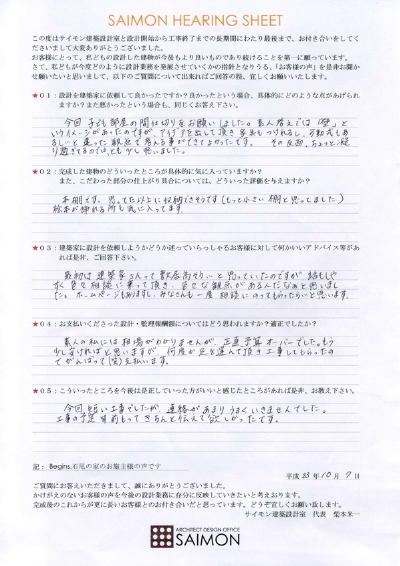 SAIMON HEARING SHEET
この度はサイモン建築設計室と設計開始から工事終了までの長期間にわたり最後まで、お付き合いをしてくだ
さいまして大変ありがとうございました。
お客様にとって、私どもの設計した建物が今後もより良いものであり続けることを第一に願っています。
さて、私どもが今度どのように設計業務を発展させていくかの指針となりうる、「お客様の声」を是非お聞か
せ願いたいと思いまして、以下のご質問について出来ればご回答の程、宜しくお願いいたします。
★01：設計を建築家に依頼して良かったですか？良かったという場合、具体的にどのような点があげられ
ますか？また悪かったという場合も、同じくお答え下さい。
今回 子ども部屋の間仕切りをお願いしました。素人考えでは「壁」と
いうイメージがあったのですが、アイデアを出して頂き
違った観点で考える事ができてよかったです。その反面、ちょっと
過ぎてるのでは、とも少し思いました。
★02：完成した建物のどういったところが具体的に気に入っていますか？
また、こだわった部分の仕上がり具合については、どういった評価を与えますか？
本棚です。思ってた以上に収納できそうです（もっと小さい棚と思ってました）
絵本が飾れる所も気に入ってます。
★03：建築家に設計を依頼しようかどうか迷っていらっしゃるお客様に対して何かいいアドバイス等があ
れば是非、ご回答下さい。
最初は建築家さんって敷居高そうと思っていたのですが、
色々相談に乗って頂き、色々な観点があるんだなぁと思いまし
た。ホームページもありますし、みなさんも一度相談にのってもらったらいいと思います。
★04：お支払いくださった設計・監理報酬額についてはどう思われますか？適正でしたか？
素人の私には相場がわかりませんが、正直予算オーバーでした。もう
少し安ければと思いますが、何度か足を運んで頂き工事してもらったの
でがんばって（笑）を払います。
★05：こういったところを今後は是正していった方がいいと感じたところがあれば是非、お教え下さい。
今回短い工事でしたが、連絡があまりうまくいきませんでした。
工事の予定を前もってきちんと伝えて欲しかったです。
記：Begins.石尾の家のお施主様の声です
平成 23 年 10 月 9 日
ご質問にお答えいただきまして、誠にありがとうございました。
かけがえのないお客様の声を今後の設計業務に存分に反映していきたいと考えおります。
完成後のこれからが更に長いお客様とのお付き合いだと思っています。どうぞ宜しくお願い致します。
サイモン建築設計室 代表 柴本米一
ARCHITECT DESIGN OFFICE
SAIMON